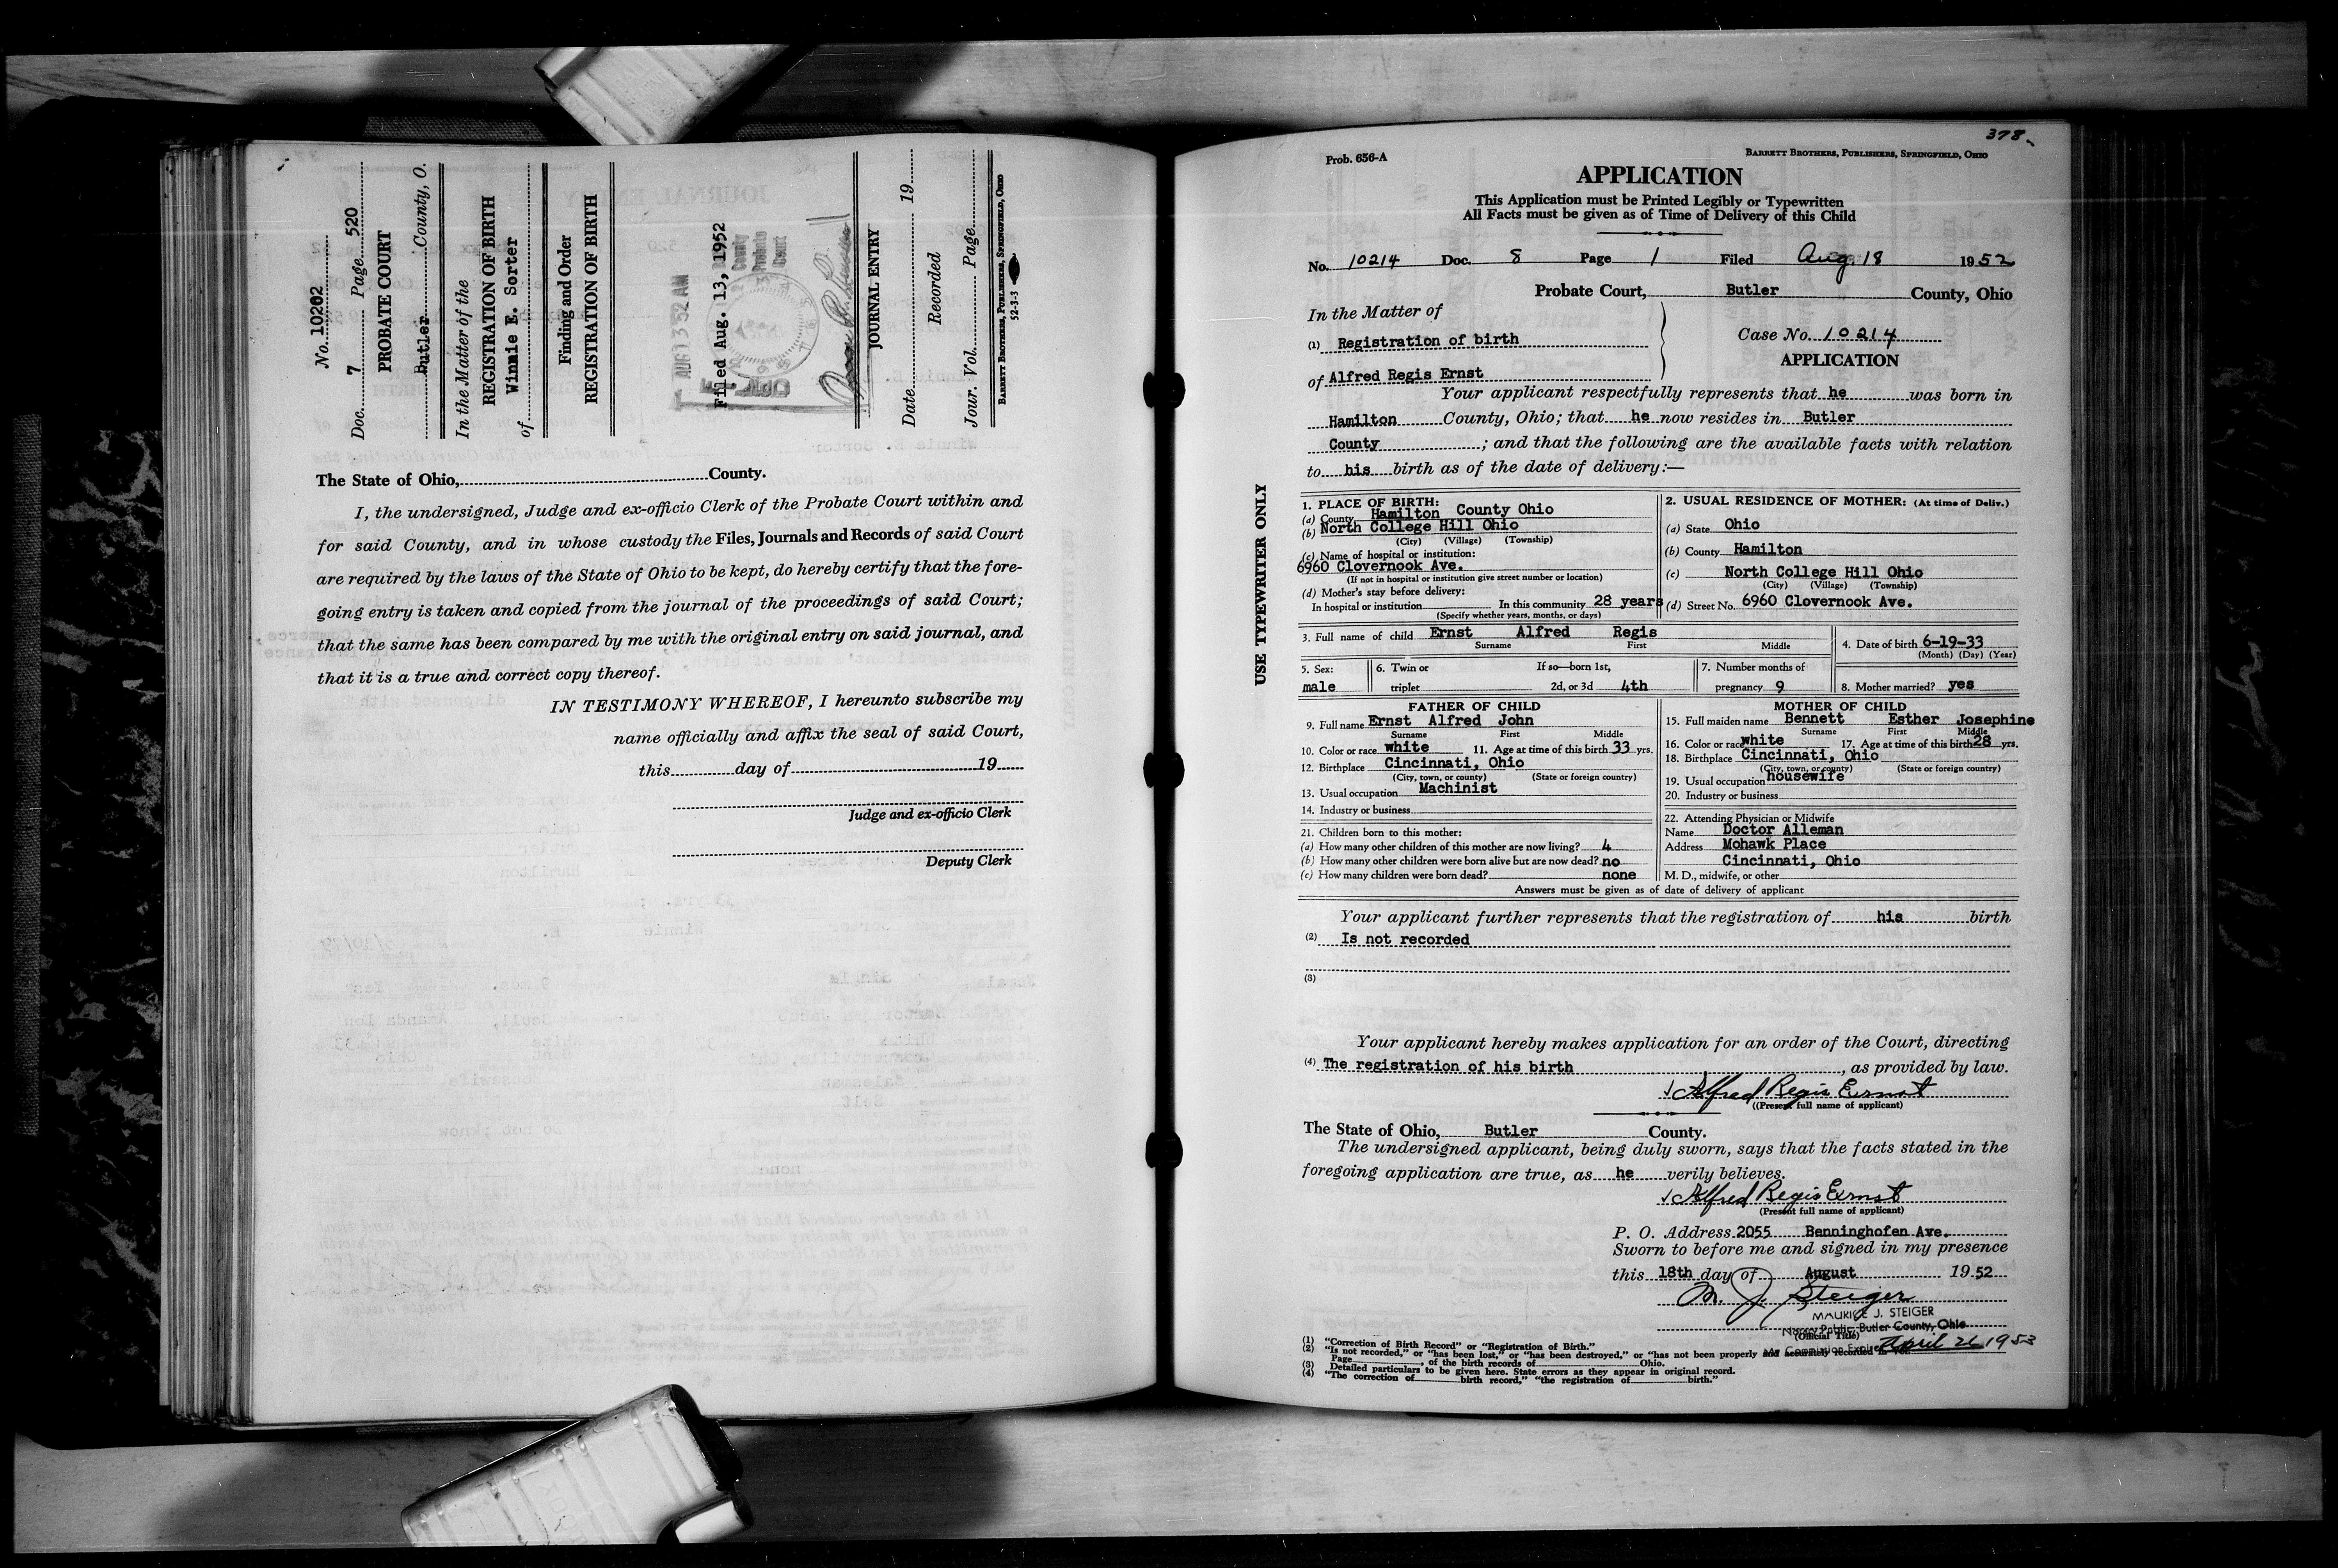 No. 10202
Doc. 7 Page 520
PROBATE COURT
Butler County, O.
In the Matter of the
REGISTRATION OF BIRTH
of Winnie E. Sorter
Finding and Order
REGISTRATION OF BIRTH
AUG 13 52 AM
Filed Aug. 13, 1952
County
Probate
Court
JOURNAL ENTRY
Date 19
Recorded
Jour. Vol. Page
BARRETT BROTHERS, PUBLISHERS, SPRINGFIELD, OHIO
52-3-3
The State of Ohio, County.
I, the undersigned, Judge and ex-officio Clerk of the Probate Court within and
for said County, and in whose custody the Files, Journals and Records of said Court
are required by the laws of the State of Ohio to be kept, do hereby certify that the fore-
going entry is taken and copied from the journal of the proceedings of said Court;
that the same has been compared by me with the original entry on said journal, and
that it is a true and correct copy thereof.
IN TESTIMONY WHEREOF, I hereunto subscribe my
name officially and affix the seal of said Court,
this day of 19
Judge and ex-officio Clerk
Deputy Clerk
378
Prob. 656-A
BARRETT BROTHERS, PUBLISHERS, SPRINGFIELD, OHIO
APPLICATION
This Application must be Printed Legibly or Typewritten
All Facts must be given as of Time of Delivery of this Child
No. 10214 Doc. 8 Page 1 Filed Aug. 18 1952
Probate Court, Butler County, Ohio
In the Matter of
(1) Registration of birth
of Alfred Regis Ernst
Case No. 10214
APPLICATION
Your applicant respectfully represents that he was born in
Hamilton County, Ohio; that he now resides in Butler
County ; and that the following are the available facts with relation
to his birth as of the date of delivery:—
USE TYPEWRITER ONLY
1. PLACE OF BIRTH:
(a) County Hamilton County Ohio
(b) North College Hill Ohio
(City) (Village) (Township)
(c) Name of hospital or institution:
6960 Clovernook Ave.
(If not in hospital or institution give street number or location)
(d) Mother's stay before delivery:
In hospital or institution In this community 28 years
(Specify whether years, months, or days)
2. USUAL RESIDENCE OF MOTHER: (At time of Deliv.)
(a) State Ohio
(b) County Hamilton
(c) North College Hill Ohio
(City) (Village) (Township)
(d) Street No. 6960 Clovernook Ave.
3. Full name of child Ernst Alfred Regis
Surname First Middle
4. Date of birth 6-19-33
(Month) (Day) (Year)
5. Sex: male
6. Twin or triplet
If so—born 1st, 2d, or 3d 4th
7. Number months of pregnancy 9
8. Mother married? yes
FATHER OF CHILD
9. Full name Ernst Alfred John
Surname First Middle
10. Color or race white 11. Age at time of this birth 33 yrs.
12. Birthplace Cincinnati, Ohio
(City, town, or county) (State or foreign country)
13. Usual occupation Machinist
14. Industry or business
MOTHER OF CHILD
15. Full maiden name Bennett Esther Josephine
Surname First Middle
16. Color or race white 17. Age at time of this birth 28 yrs.
18. Birthplace Cincinnati, Ohio
(City, town, or county) (State or foreign country)
19. Usual occupation housewife
20. Industry or business
21. Children born to this mother:
(a) How many other children of this mother are now living? 4
(b) How many other children were born alive but are now dead? no
(c) How many children were born dead? none
22. Attending Physician or Midwife
Name Doctor Alleman
Address Mohawk Place
Cincinnati, Ohio
M. D., midwife, or other
Answers must be given as of date of delivery of applicant
Your applicant further represents that the registration of his birth
(2) Is not recorded
(3)
Your applicant hereby makes application for an order of the Court, directing
(4) The registration of his birth , as provided by law.
Alfred Regis Ernst
((Present full name of applicant)
The State of Ohio, Butler County.
The undersigned applicant, being duly sworn, says that the facts stated in the
foregoing application are true, as he verily believes.
Alfred Regis Ernst
(Present full name of applicant)
P. O. Address 2055 Benninghofen Ave.
Sworn to before me and signed in my presence
this 18th day of August 1952
M. J. Steiger
MAURICE J. STEIGER
Notary Public, Butler County, Ohio
(Official Title)
My Commission Expires April 26 1953
(1) "Correction of Birth Record" or "Registration of Birth."
(2) "Is not recorded," or "has been lost," or "has been destroyed," or "has not been properly and accurately recorded in Vol.
Page , of the birth records of Ohio.
(3) Detailed particulars to be given here. State errors as they appear in original record.
(4) "The correction of birth record," "the registration of birth."